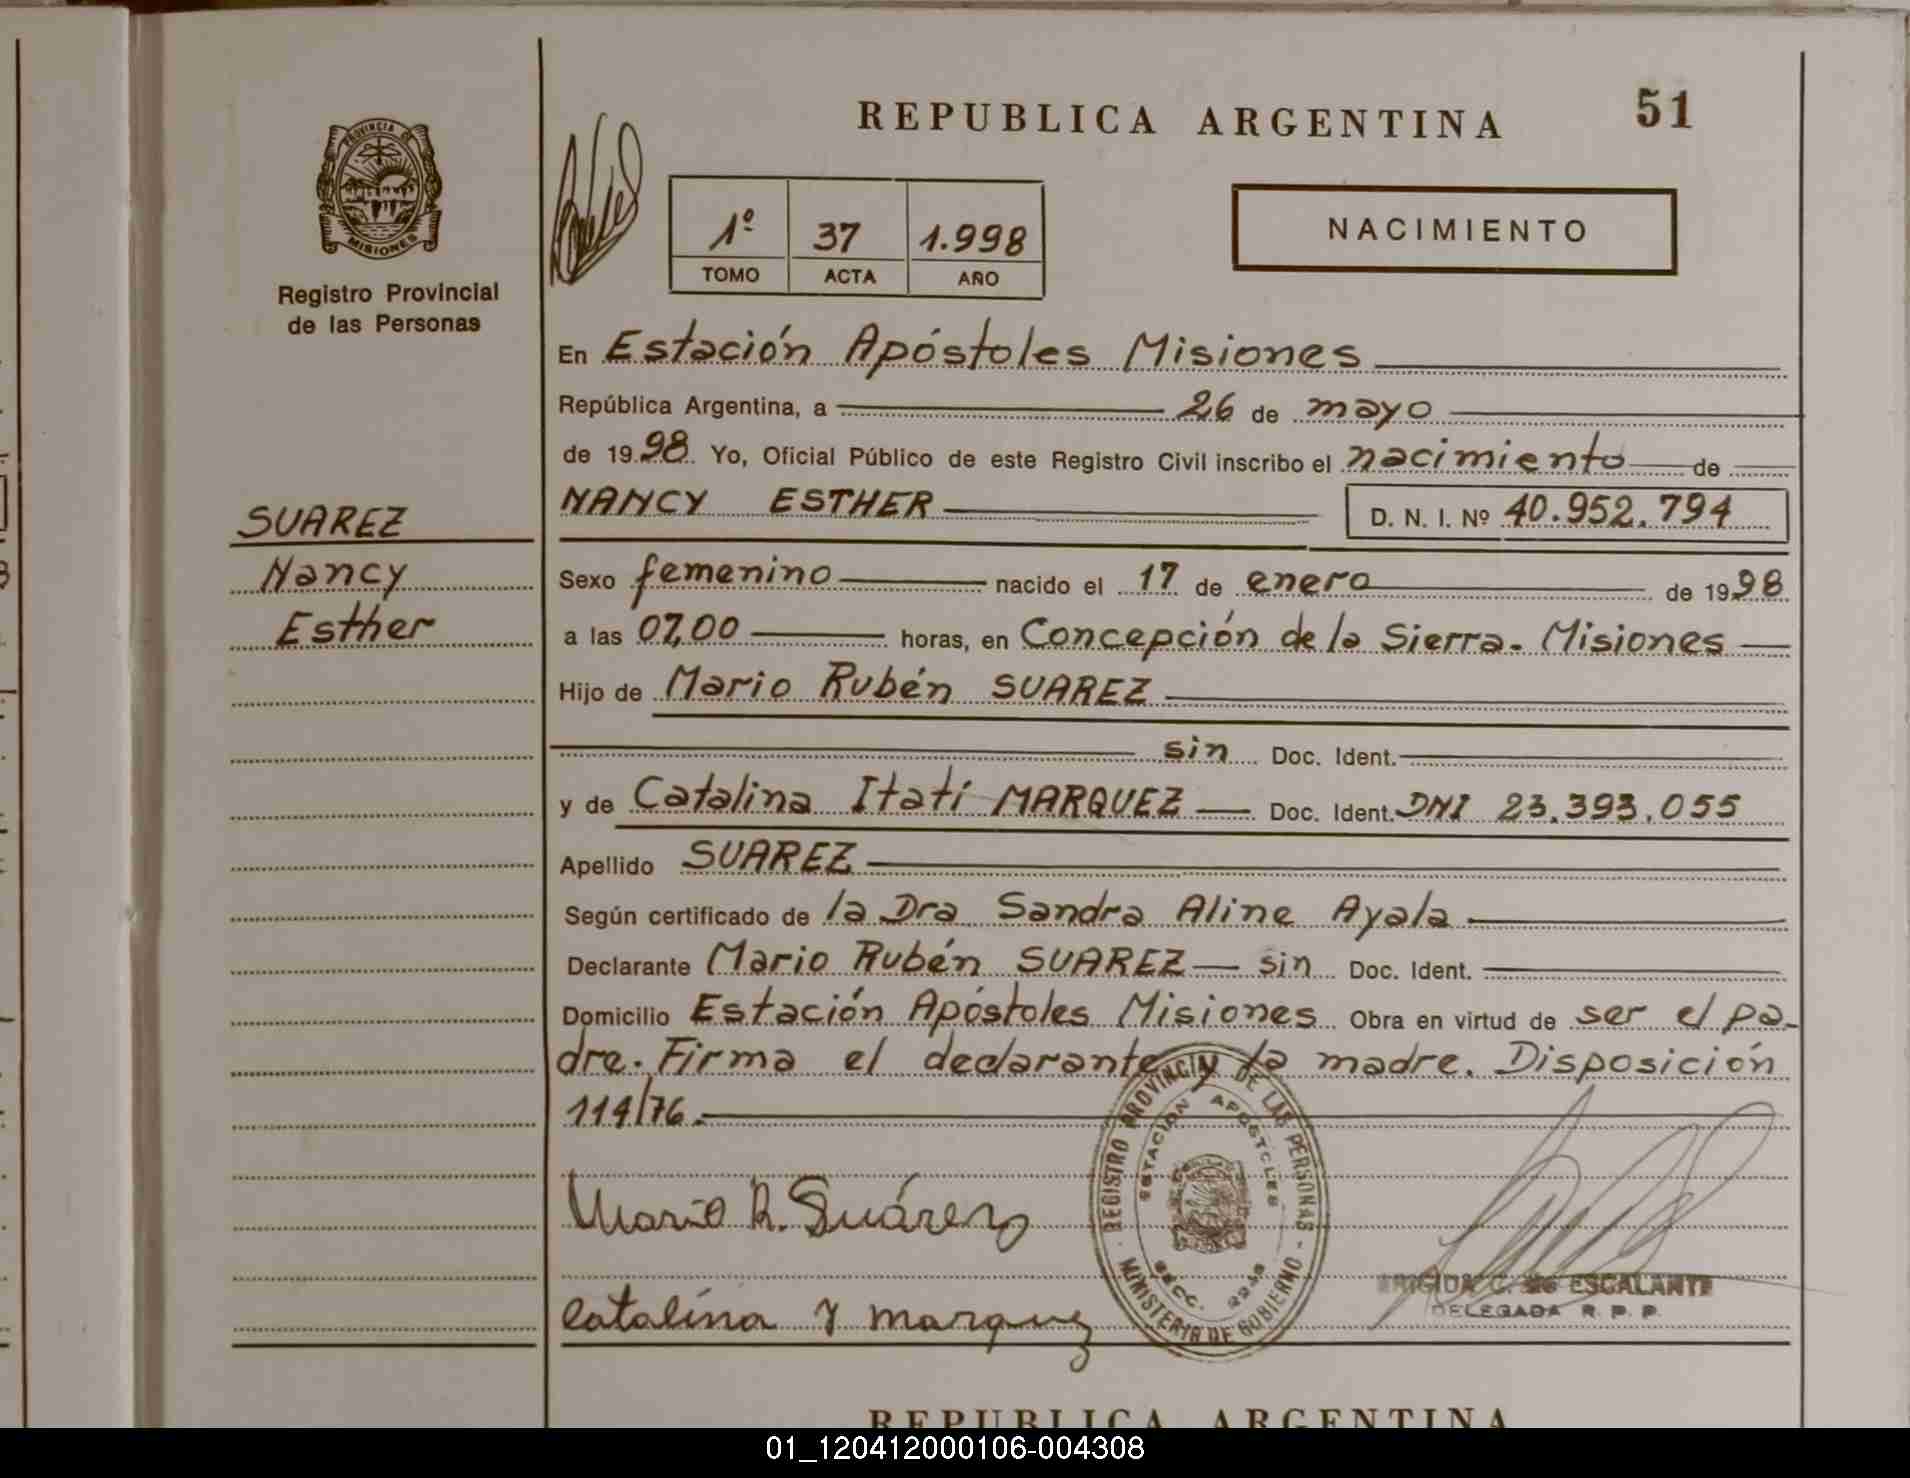 REPUBLICA ARGENTINA
51
PROVINCIA DE
MISIONES
Registro Provincial
de las Personas
1º 37 1.998
TOMO ACTA AÑO
NACIMIENTO
En Estación Apóstoles Misiones
República Argentina, a 26 de mayo
de 1998 Yo, Oficial Público de este Registro Civil inscribo el nacimiento de
NANCY ESTHER D. N. I. Nº 40.952.794
SUAREZ
Nancy
Esther
Sexo femenino nacido el 17 de enero de 1998
a las 07,00 horas, en Concepción de la Sierra. Misiones
Hijo de Mario Rubén SUAREZ
sin Doc. Ident.
y de Catalina Itatí MARQUEZ Doc. Ident. DNI 23.393.055
Apellido SUAREZ
Según certificado de la Dra Sandra Aline Ayala
Declarante Mario Rubén SUAREZ sin Doc. Ident.
Domicilio Estación Apóstoles Misiones Obra en virtud de ser el pa-
dre. Firma el declarante y la madre. Disposición
114/76.
Mario R. Suárez
Catalina Y Marquez
REGISTRO PROVINCIAL DE LAS PERSONAS - MINISTERIO DE GOBIERNO
ESTACION APOSTOLES
SECC.
BRIGIDA C. de ESCALANTE
DELEGADA R. P. P.
REPUBLICA ARGENTINA
01_120412000106-004308